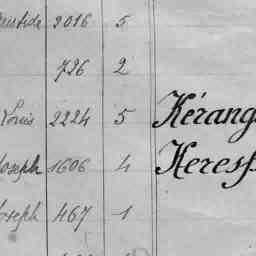 2016 5
726 2
Louis 2224 5 Kérang
Joseph 1606 4 Keresp
Joseph 467 1